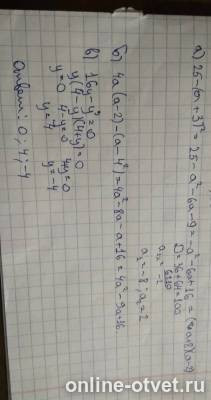 а) 25-(a+3)² = 25-a²-6a-9 = -a²-6a+16 = (a+8)(a-2)
D = 36+64 = 100
a₁ = -8; a₂ = 2
б) 4a(a-2)-(a-4)² = 4a²-8a-a+16 = 4a²-9a+16
в) 16y-y³=0
y(4-y)(4+y)=0
y=0 4-y=0 4+y=0
y=4 y=-4
Ответ: 0; 4; -4
online-otvet.ru